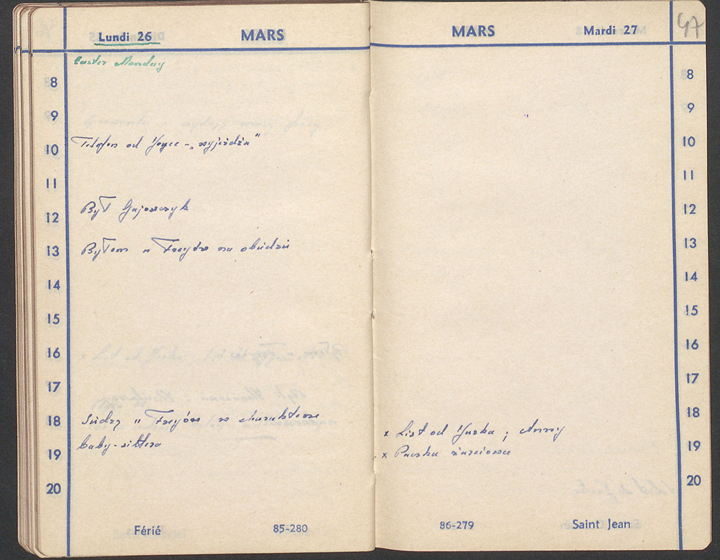 Lundi 26
MARS
Easter Monday
8
9
Telefon od Joyce - „wyjeżdża"
10
11
Był Gajewczyk
12
Byłem u Freyów na obiedzie
13
14
15
16
17
Siedzę u Freyów w charakterze
18
baby-sittera
19
20
Férié
85-280
MARS
Mardi 27
47
8
9
10
11
12
13
14
15
16
17
18
x List od Jurka i Anny
19
x Paczka
20
86-279
Saint Jean